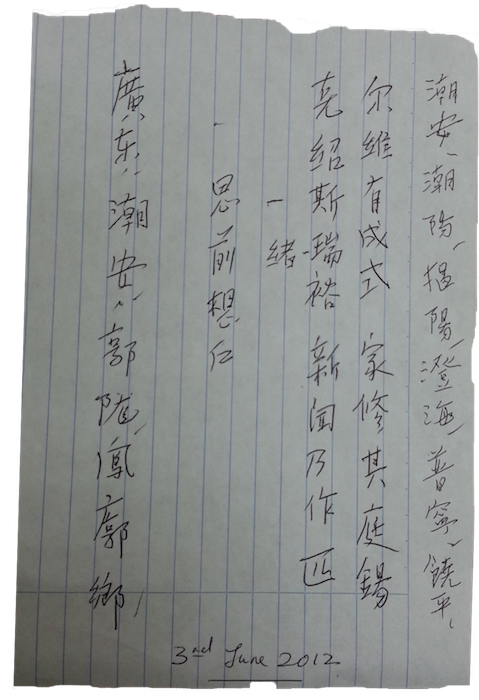 潮安、潮阳、揭陽、澄海、普寧、饒平、
尔維有成式 家修其庭錫
亮紹斯瑞裕 新闻乃作匹
一緒
思前想仁
廣东、潮安、部隴鳳廓鄉,
3nd June 2012